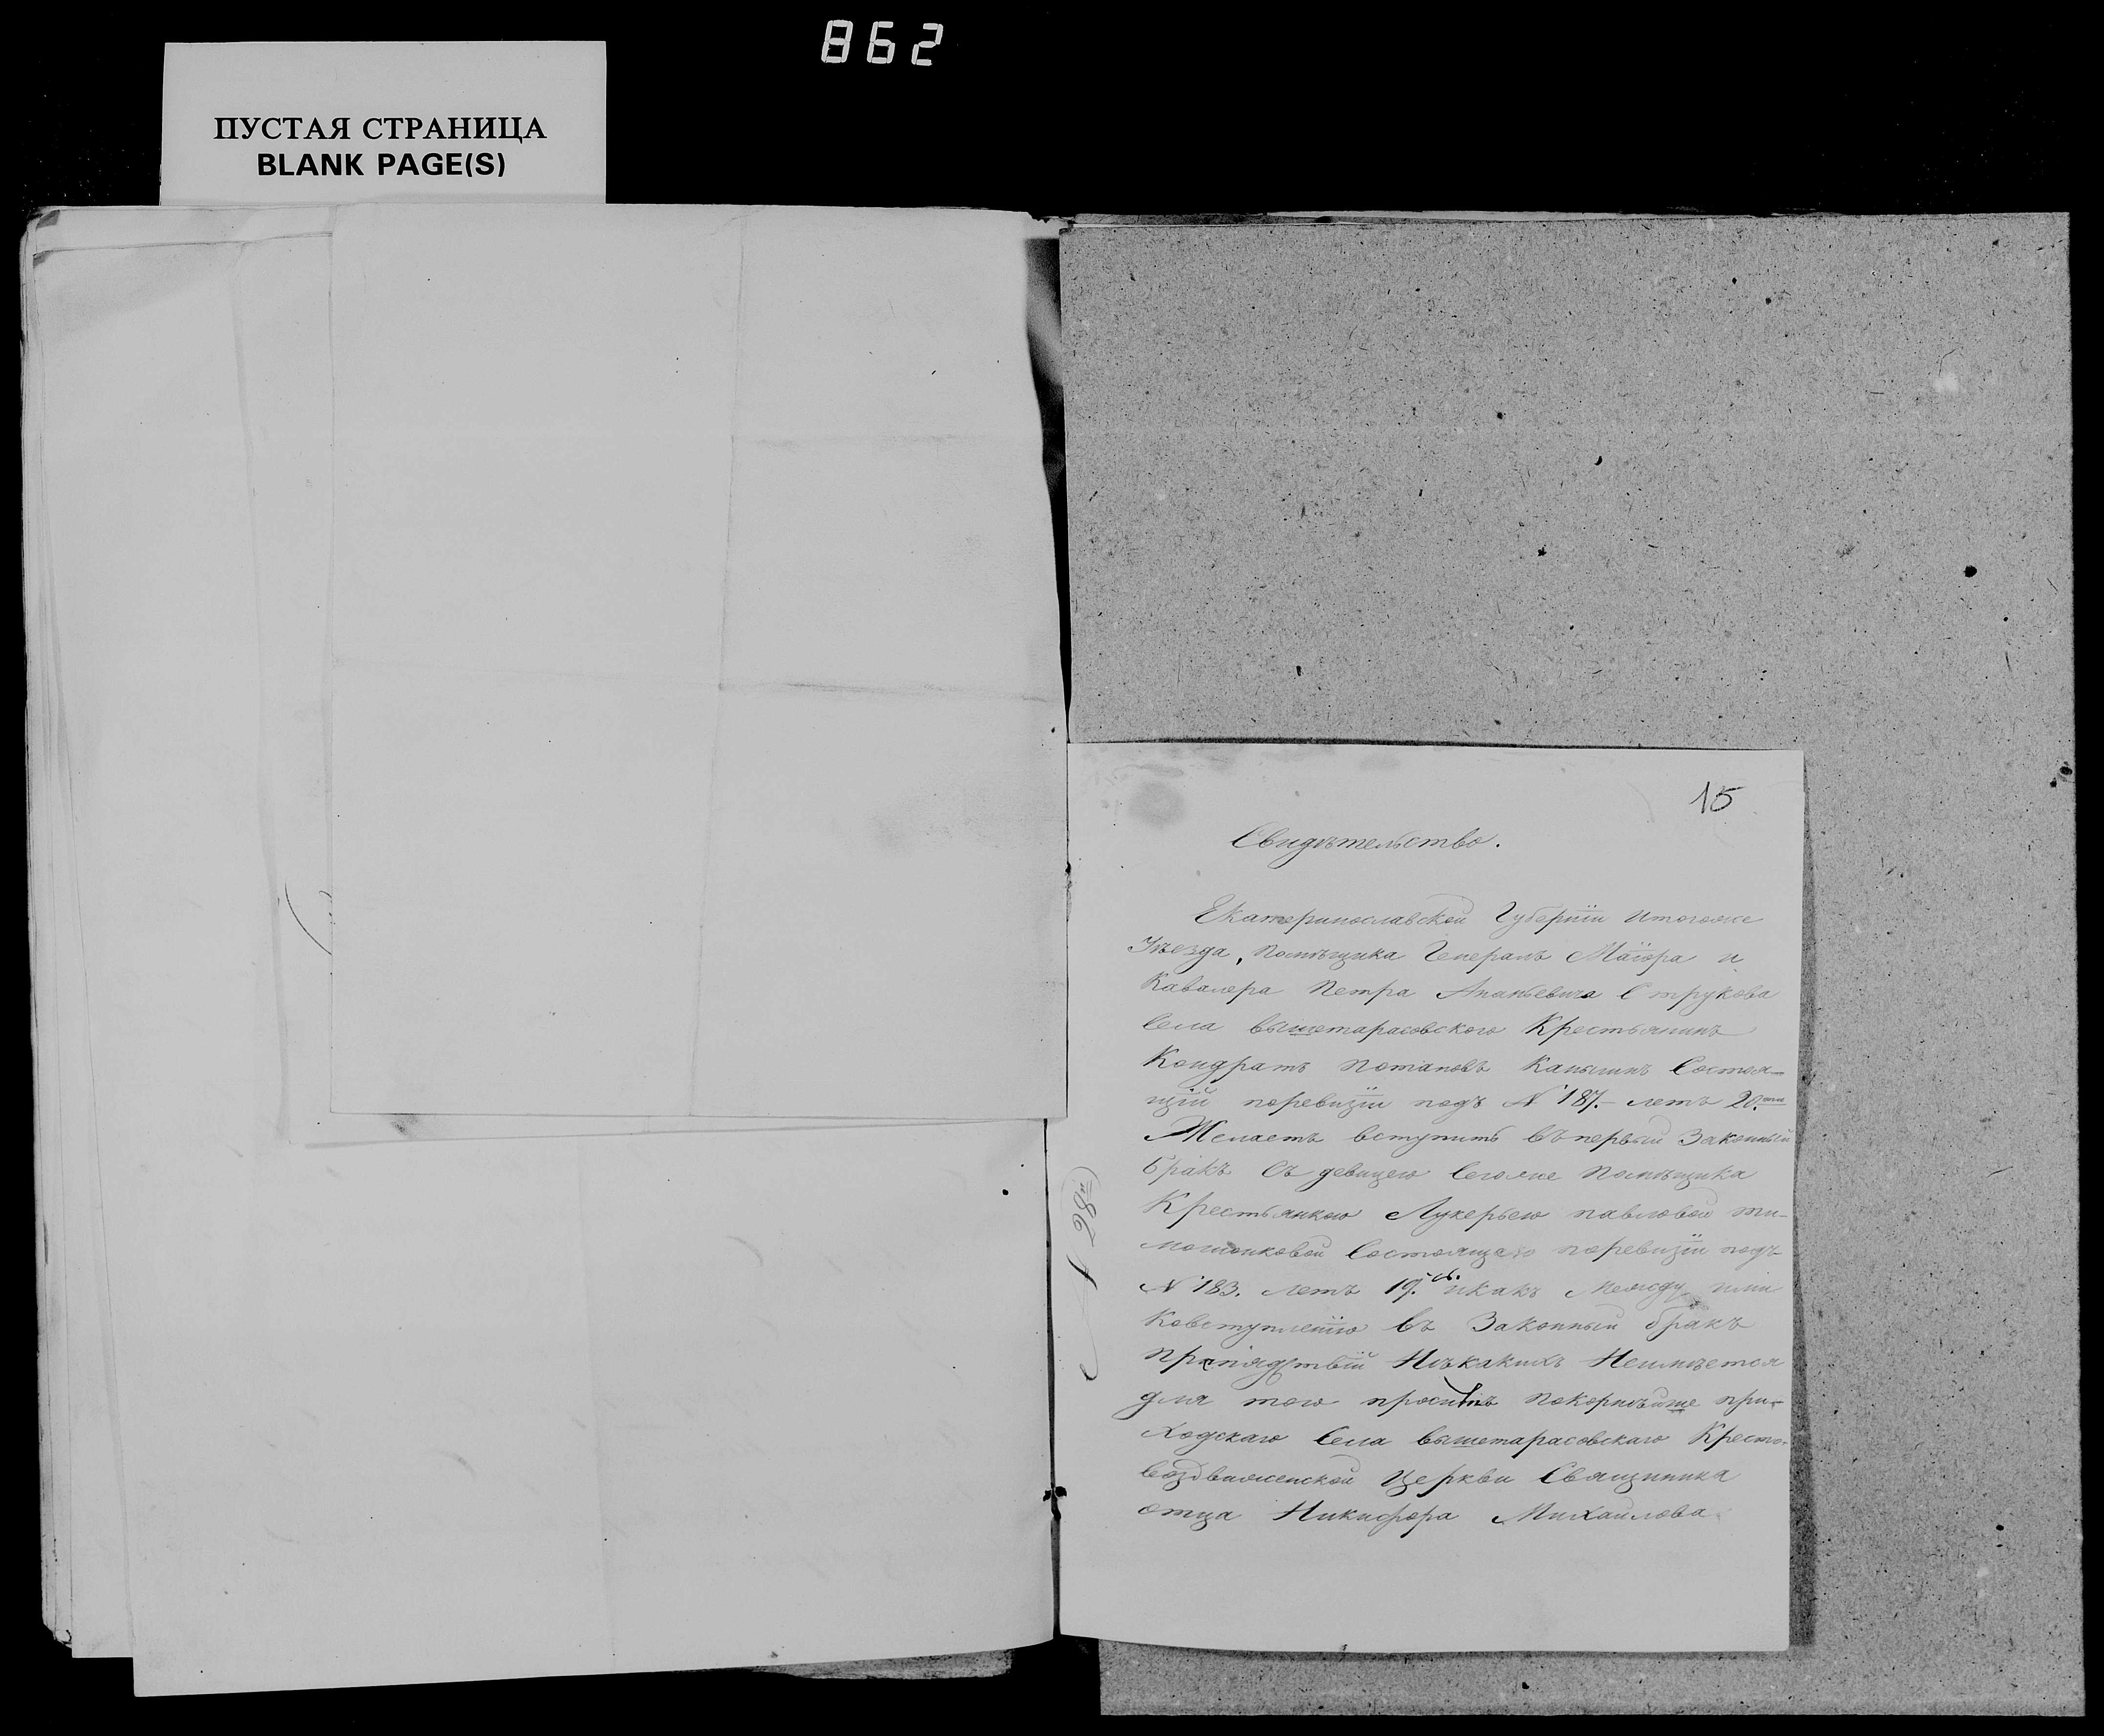 862
ПУСТАЯ СТРАНИЦА
BLANK PAGE(S)
15
Свидѣтельство.
Екатеринославской Губернїи итогоже
Уѣезда, помѣщика Генералъ Маїора и
Кавалера Петра Ананьевича Струкова
Села вышетарасовского Крестьянинъ
Кондратъ Потаповъ Состоя-
щїй поревизїи подъ № 187. летъ 20.ти
Желаетъ вступить въ первый Законный
бракъ Съ девицею Сегоже Помѣщика
Крестьянкою Лукерьею павловой ти-
мошонковой Состоящею поревизїи подъ
№ 183. летъ 19. икакъ Между ими
Ковступленїю въ Законный бракъ
препядствїй Нѣкакихъ Неимѣетса
для того проситъ покорнѣйше при-
ходскаго Села вышетарасовскаго Кресто-
воздвиженской Церкви Священника
отца Никифора Михайлова
№ 28й